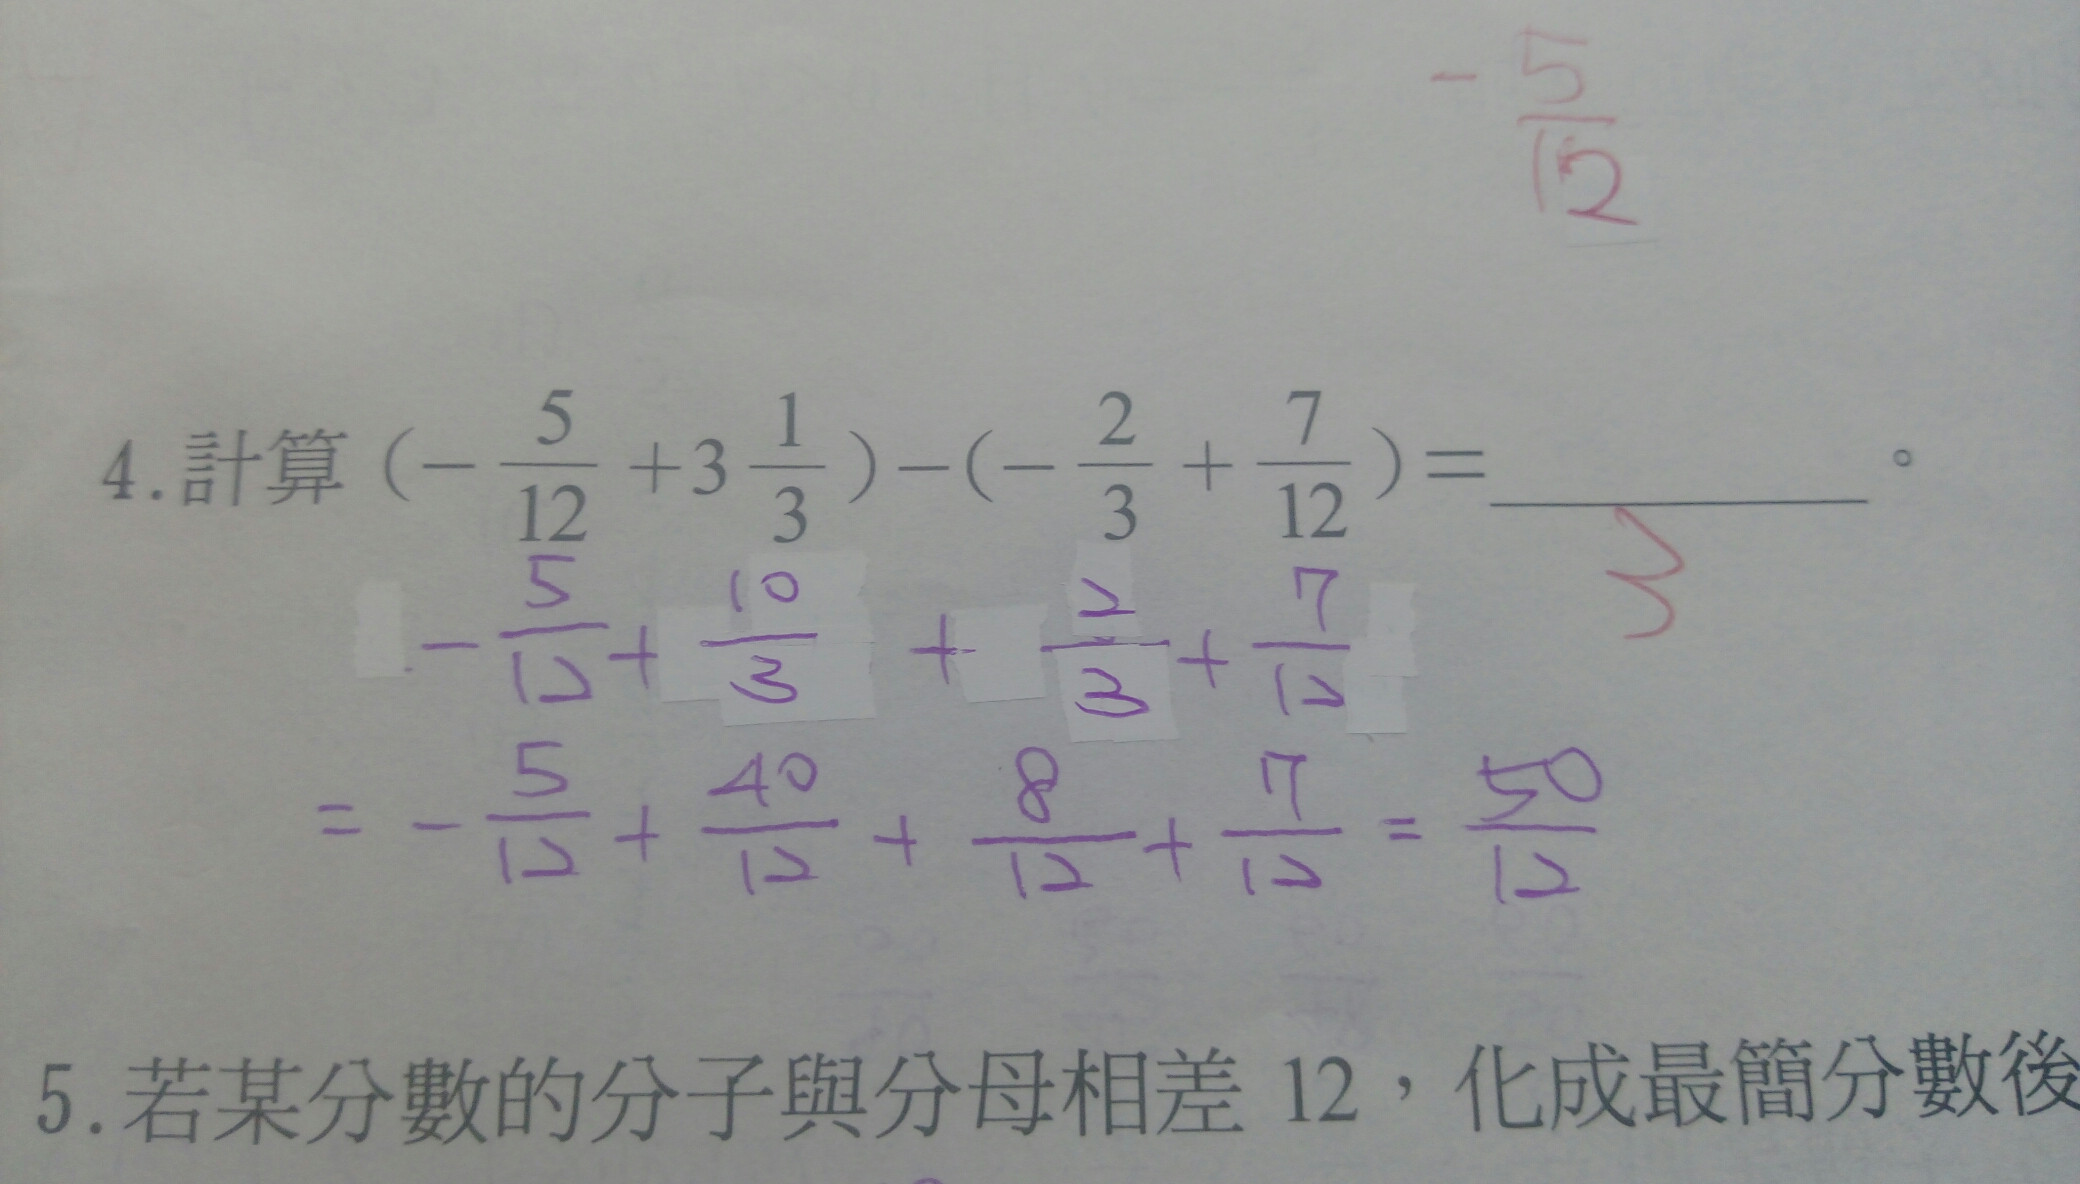 -5/12
4.計算(-5/12+3 1/3)-(-2/3+7/12)=________。
3
-5/12+10/3+2/3+7/12
=-5/12+40/12+8/12+7/12=50/12
5.若某分數的分子與分母相差 12,化成最簡分數後